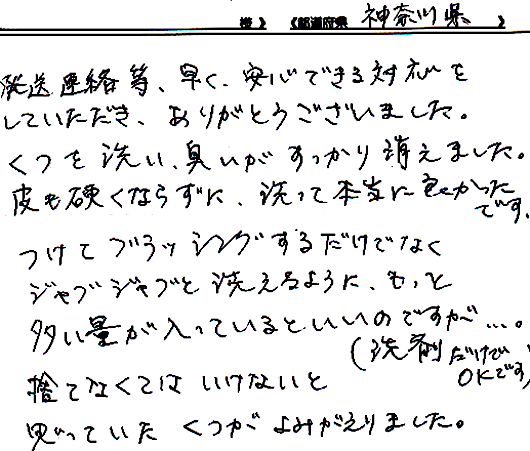 様》 《都道府県 神奈川県 》
発送連絡等、早く、安心できる対応を
していただき、ありがとうございました。
くつを洗い、臭いがすっかり消えました。
皮も硬くならずに、洗って本当に良かった
です。
つけてブラッシングするだけでなく
ジャブジャブと洗えるように、もっと
多い量が入っているといいのですが…。
(洗剤だけで
OKです)
捨てなくてはいけないと
思っていたくつがよみがえりました。